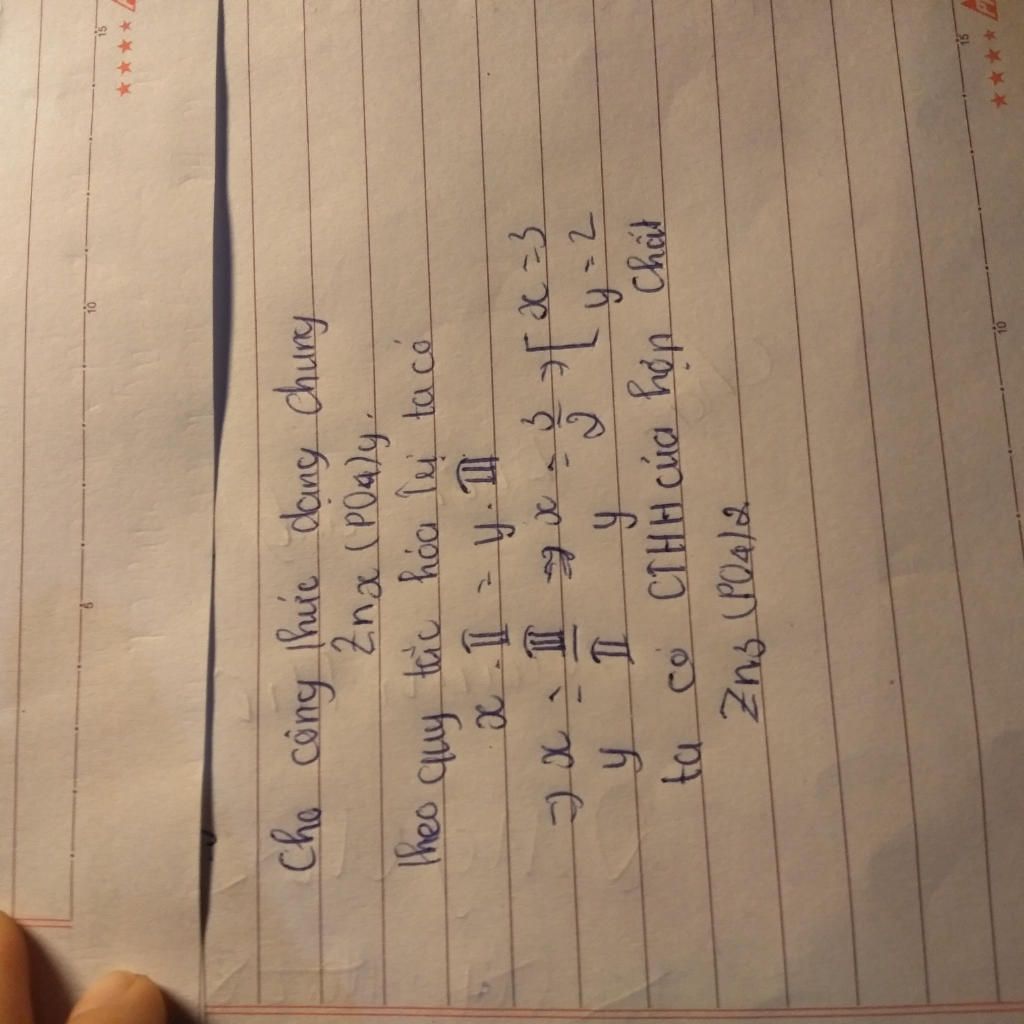 Cho công thức dạng chung
Znx (PO4)y.
Theo quy tắc hóa trị ta có
x . II = y . III
=> x = III => x = 3 => [ x = 3
y II y 2 [ y = 2
ta có CTHH của hợp chất
Zn3 (PO4)2
15
10
5
15
10